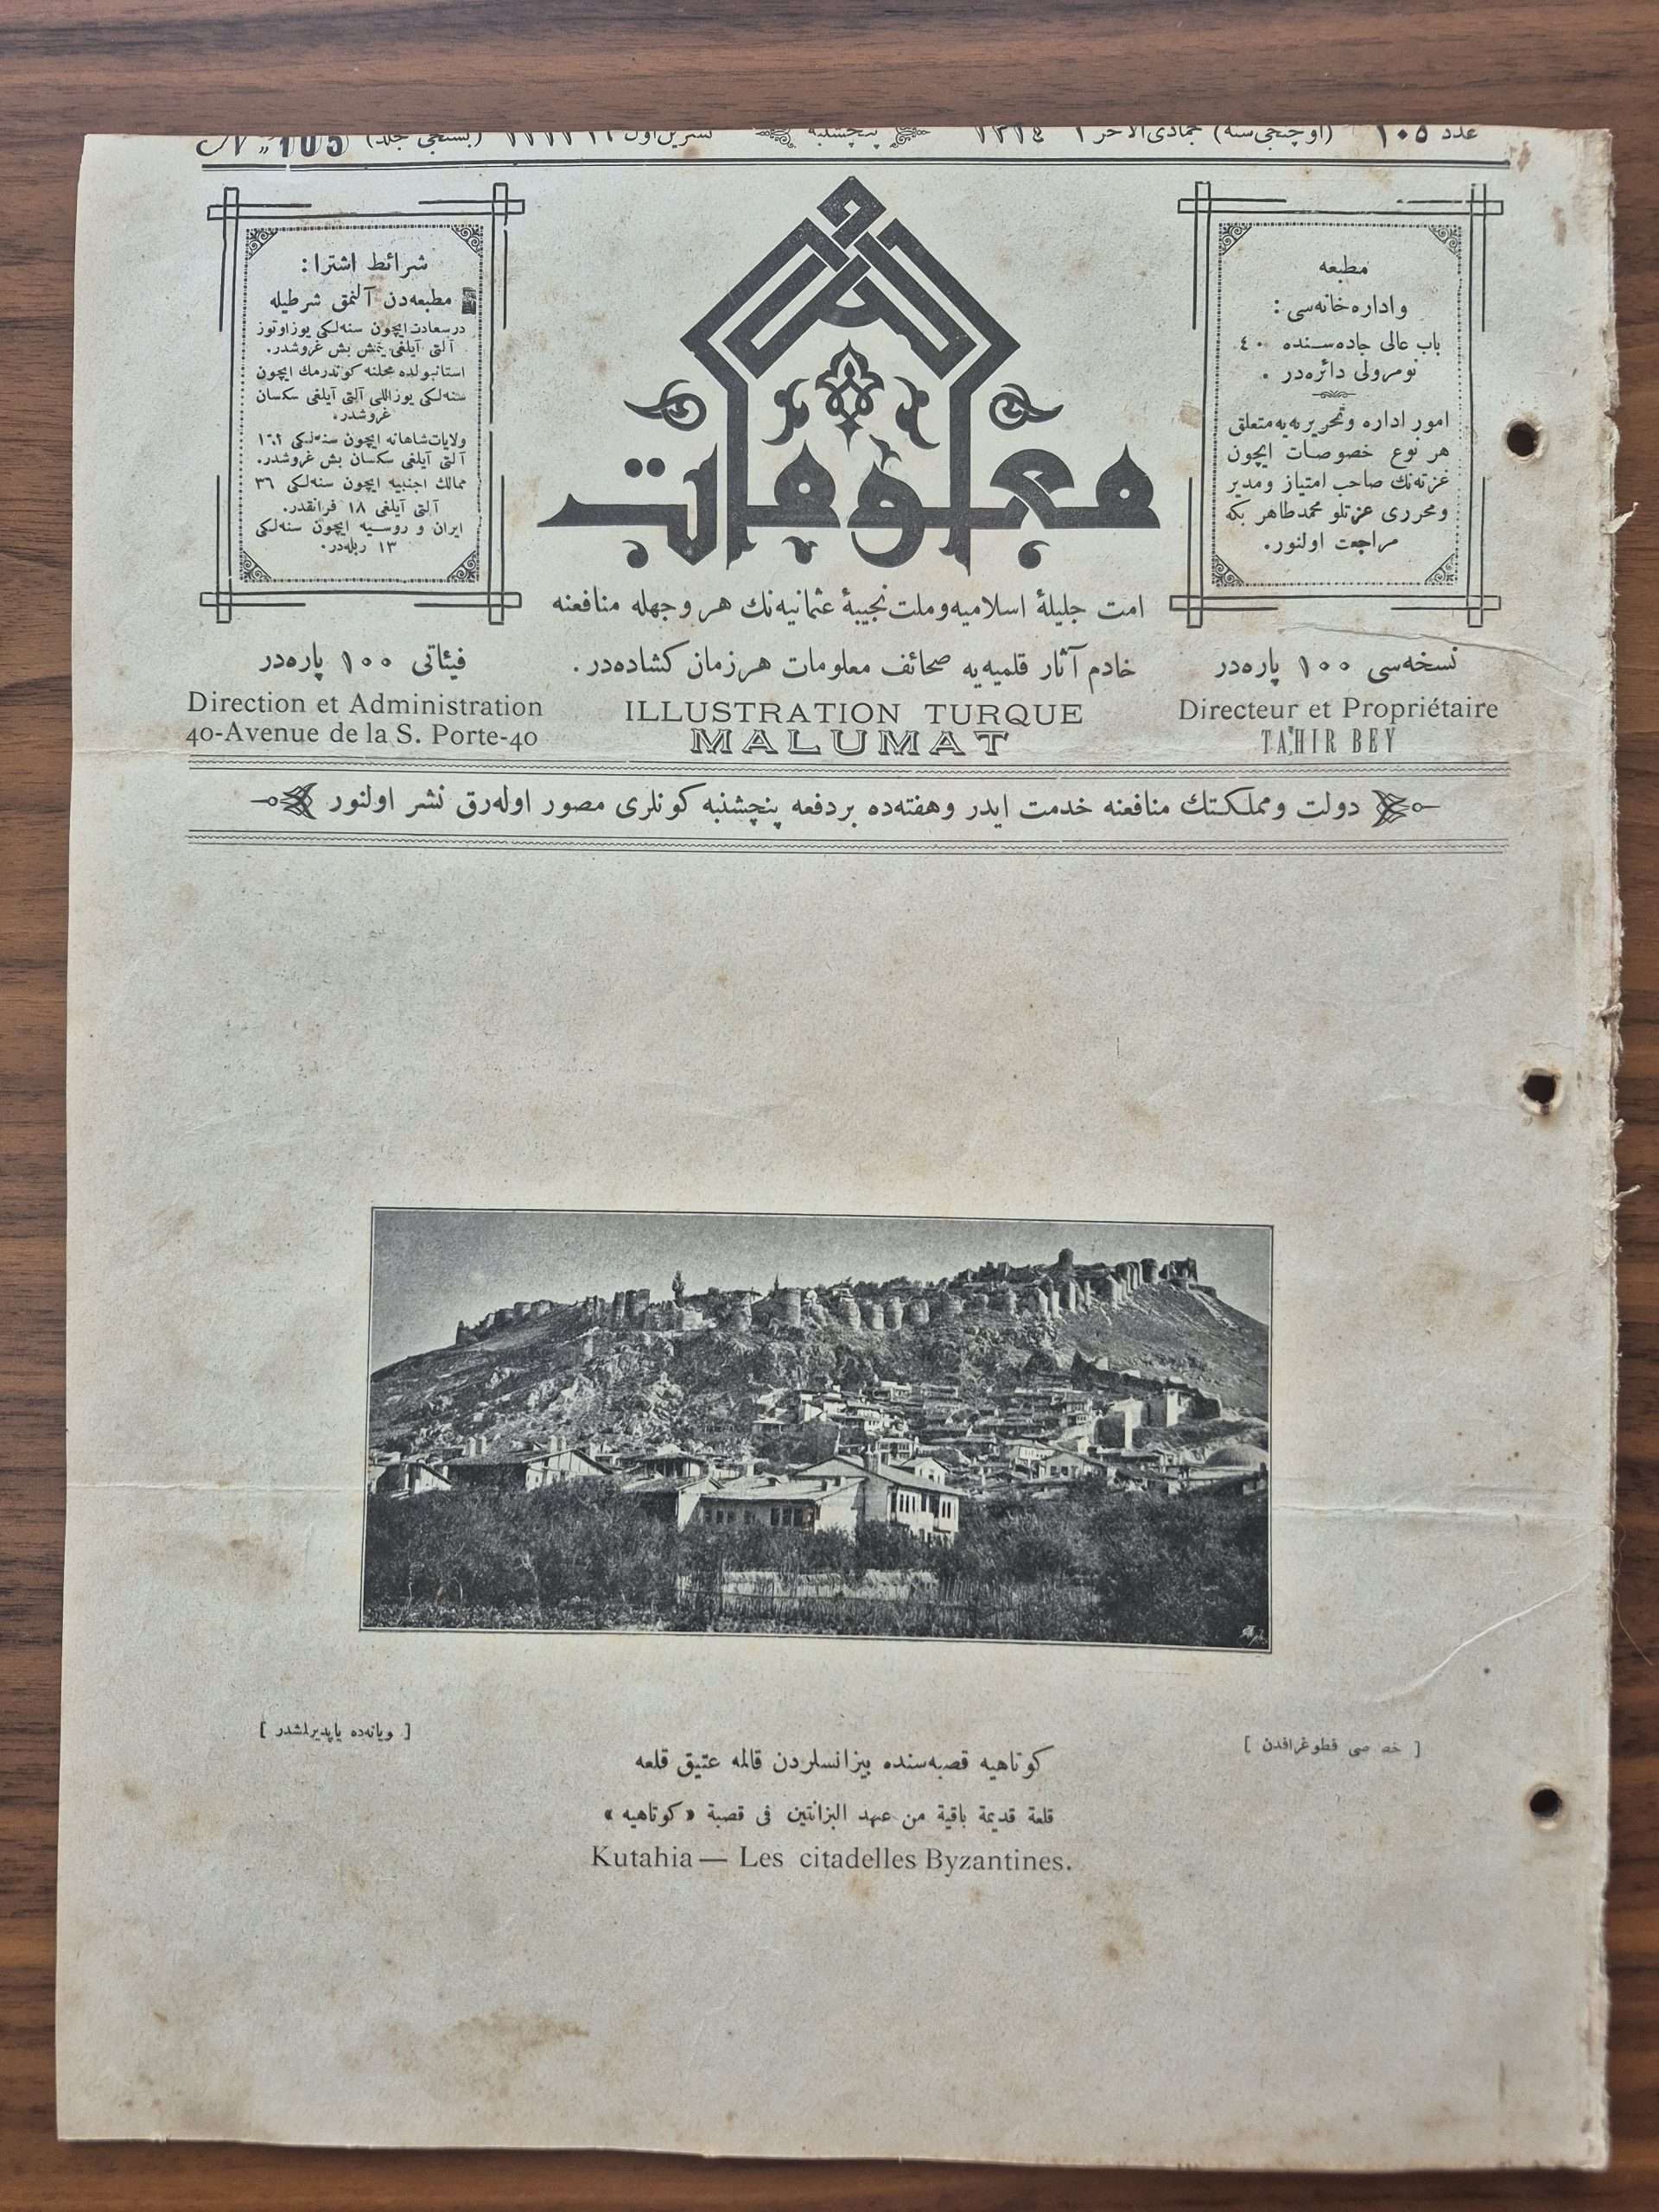 عدد ١٠٥ (اوچنجی سنه) جمادی الآخر ١٣١٤ پنجشنبه تشرین اول (بشنجی جلد) Nº 105
معلومات
مطبعه
واداره خانه‌سی :
باب عالی جاده‌سنده ٤٠
نومرولی دائره‌در .
امور اداره و تحریریه‌یه متعلق
هر نوع خصوصات ایچون
غزته‌نك صاحب امتیاز ومدیر
ومحرری عزتلو محمد طاهر بكه
مراجعت اولنور.
نسخه‌سی ١٠٠ پاره‌در
Directeur et Propriétaire
TAHIR BEY
امت جلیلهٔ اسلامیه وملت نجیبهٔ عثمانیه‌نك هر وجهله منافعنه
خادم آثار قلمیه‌یه صحائف معلومات هر زمان كشاده‌در .
ILLUSTRATION TURQUE
MALUMAT
شرائط اشترا :
مطبعه‌دن آلنمق شرطیله
درسعادت ایچون سنه‌لكی یوز اوتوز
آلتی آیلغی یتمش بش غروشدر.
استانبولده محلنه كوندرمك ایچون
سنه‌لكی یوز اللی آلتی آیلغی سكسان
غروشدر.
ولایات شاهانه ایچون سنه‌لكی
آلتی آیلغی سكسان بش غروشدر.
ممالك اجنبیه ایچون سنه‌لكی ٣٦
آلتی آیلغی ١٨ فرانقدر.
ایران و روسیه ایچون سنه‌لكی
١٣ ربله‌در.
فیئاتی ١٠٠ پاره‌در
Direction et Administration
40-Avenue de la S. Porte-40
دولت ومملكتك منافعنه خدمت ایدر وهفته‌ده بر دفعه پنچشنبه كونلری مصور اوله‌رق نشر اولنور
[ خصوصی فطوغرافدن ]
[ ویانه‌ده یاپدیرلمشدر ]
كوتاهیه قصبه‌سنده بیزانسلردن قالمه عتیق قلعه
قلعة قدیمة باقیة من عهد البزانتین فی قصبة «كوتاهیه»
Kutahia — Les citadelles Byzantines.